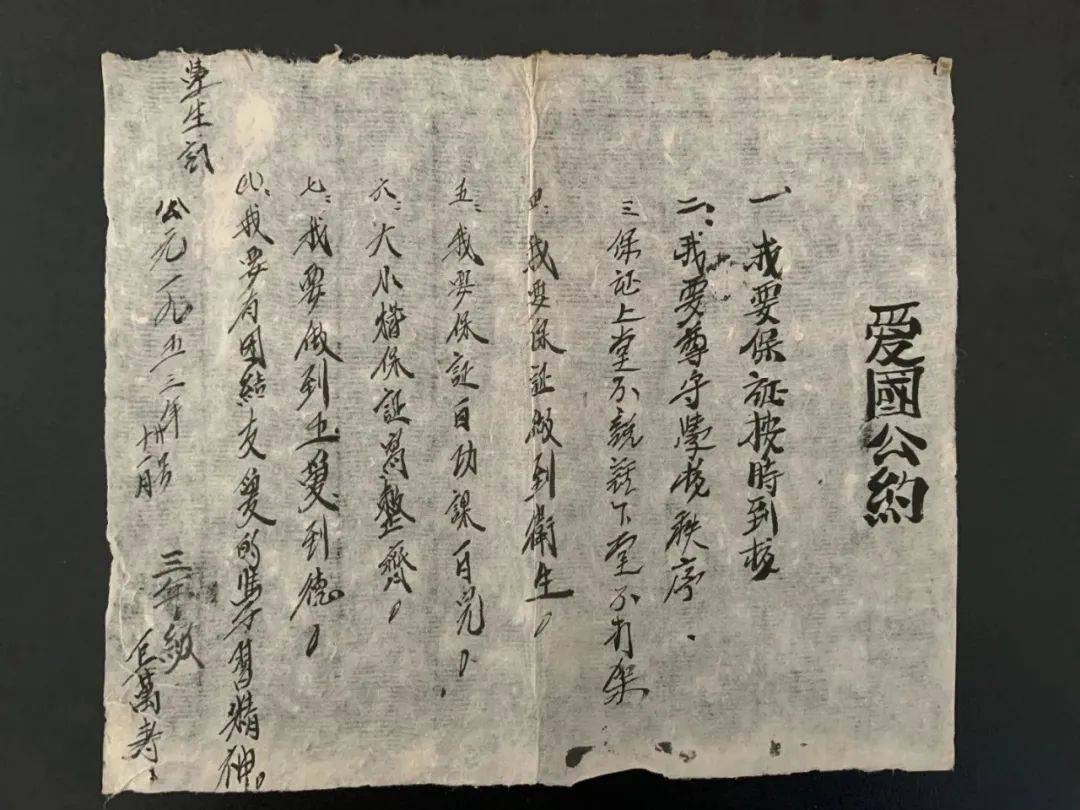 爱國公約
一 我要保证按時到校
二：我要尊守學校秩序．
三 保证上堂不說話下堂不打架
四：我要保証做到衛生。
五：我要保証日功課日完。
六：大小楷保証寫整齊。
七：我要做到五愛到德。
八：我要有团結友愛的學習精神。
學生
公元一九五二年 十二月
三年級
萬壽